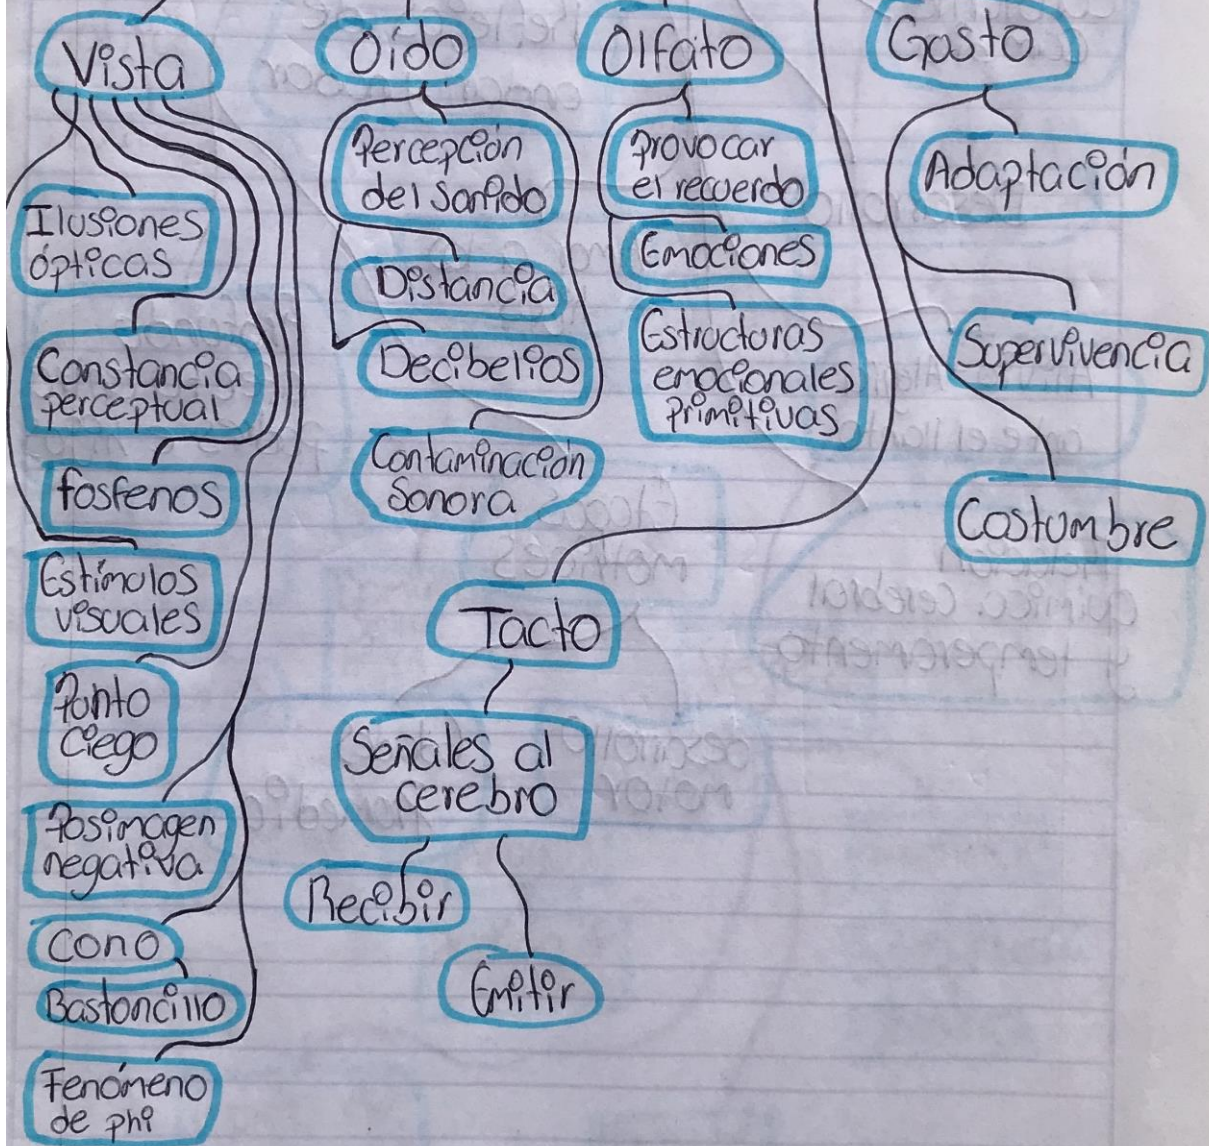 Vista
Oído
Olfato
Gusto
Ilusiones
ópticas
Constancia
perceptual
fosfenos
Estímulos
visuales
Punto
ciego
Posimagen
negativa
Cono
Bastoncillo
Fenómeno
de phi
Percepción
del sonido
Distancia
Decibelios
Contaminación
Sonora
Provocar
el recuerdo
Emociones
Estructuras
emocionales
Primitivas
Adaptación
Supervivencia
Costumbre
Tacto
Señales al
cerebro
Recibir
Emitir